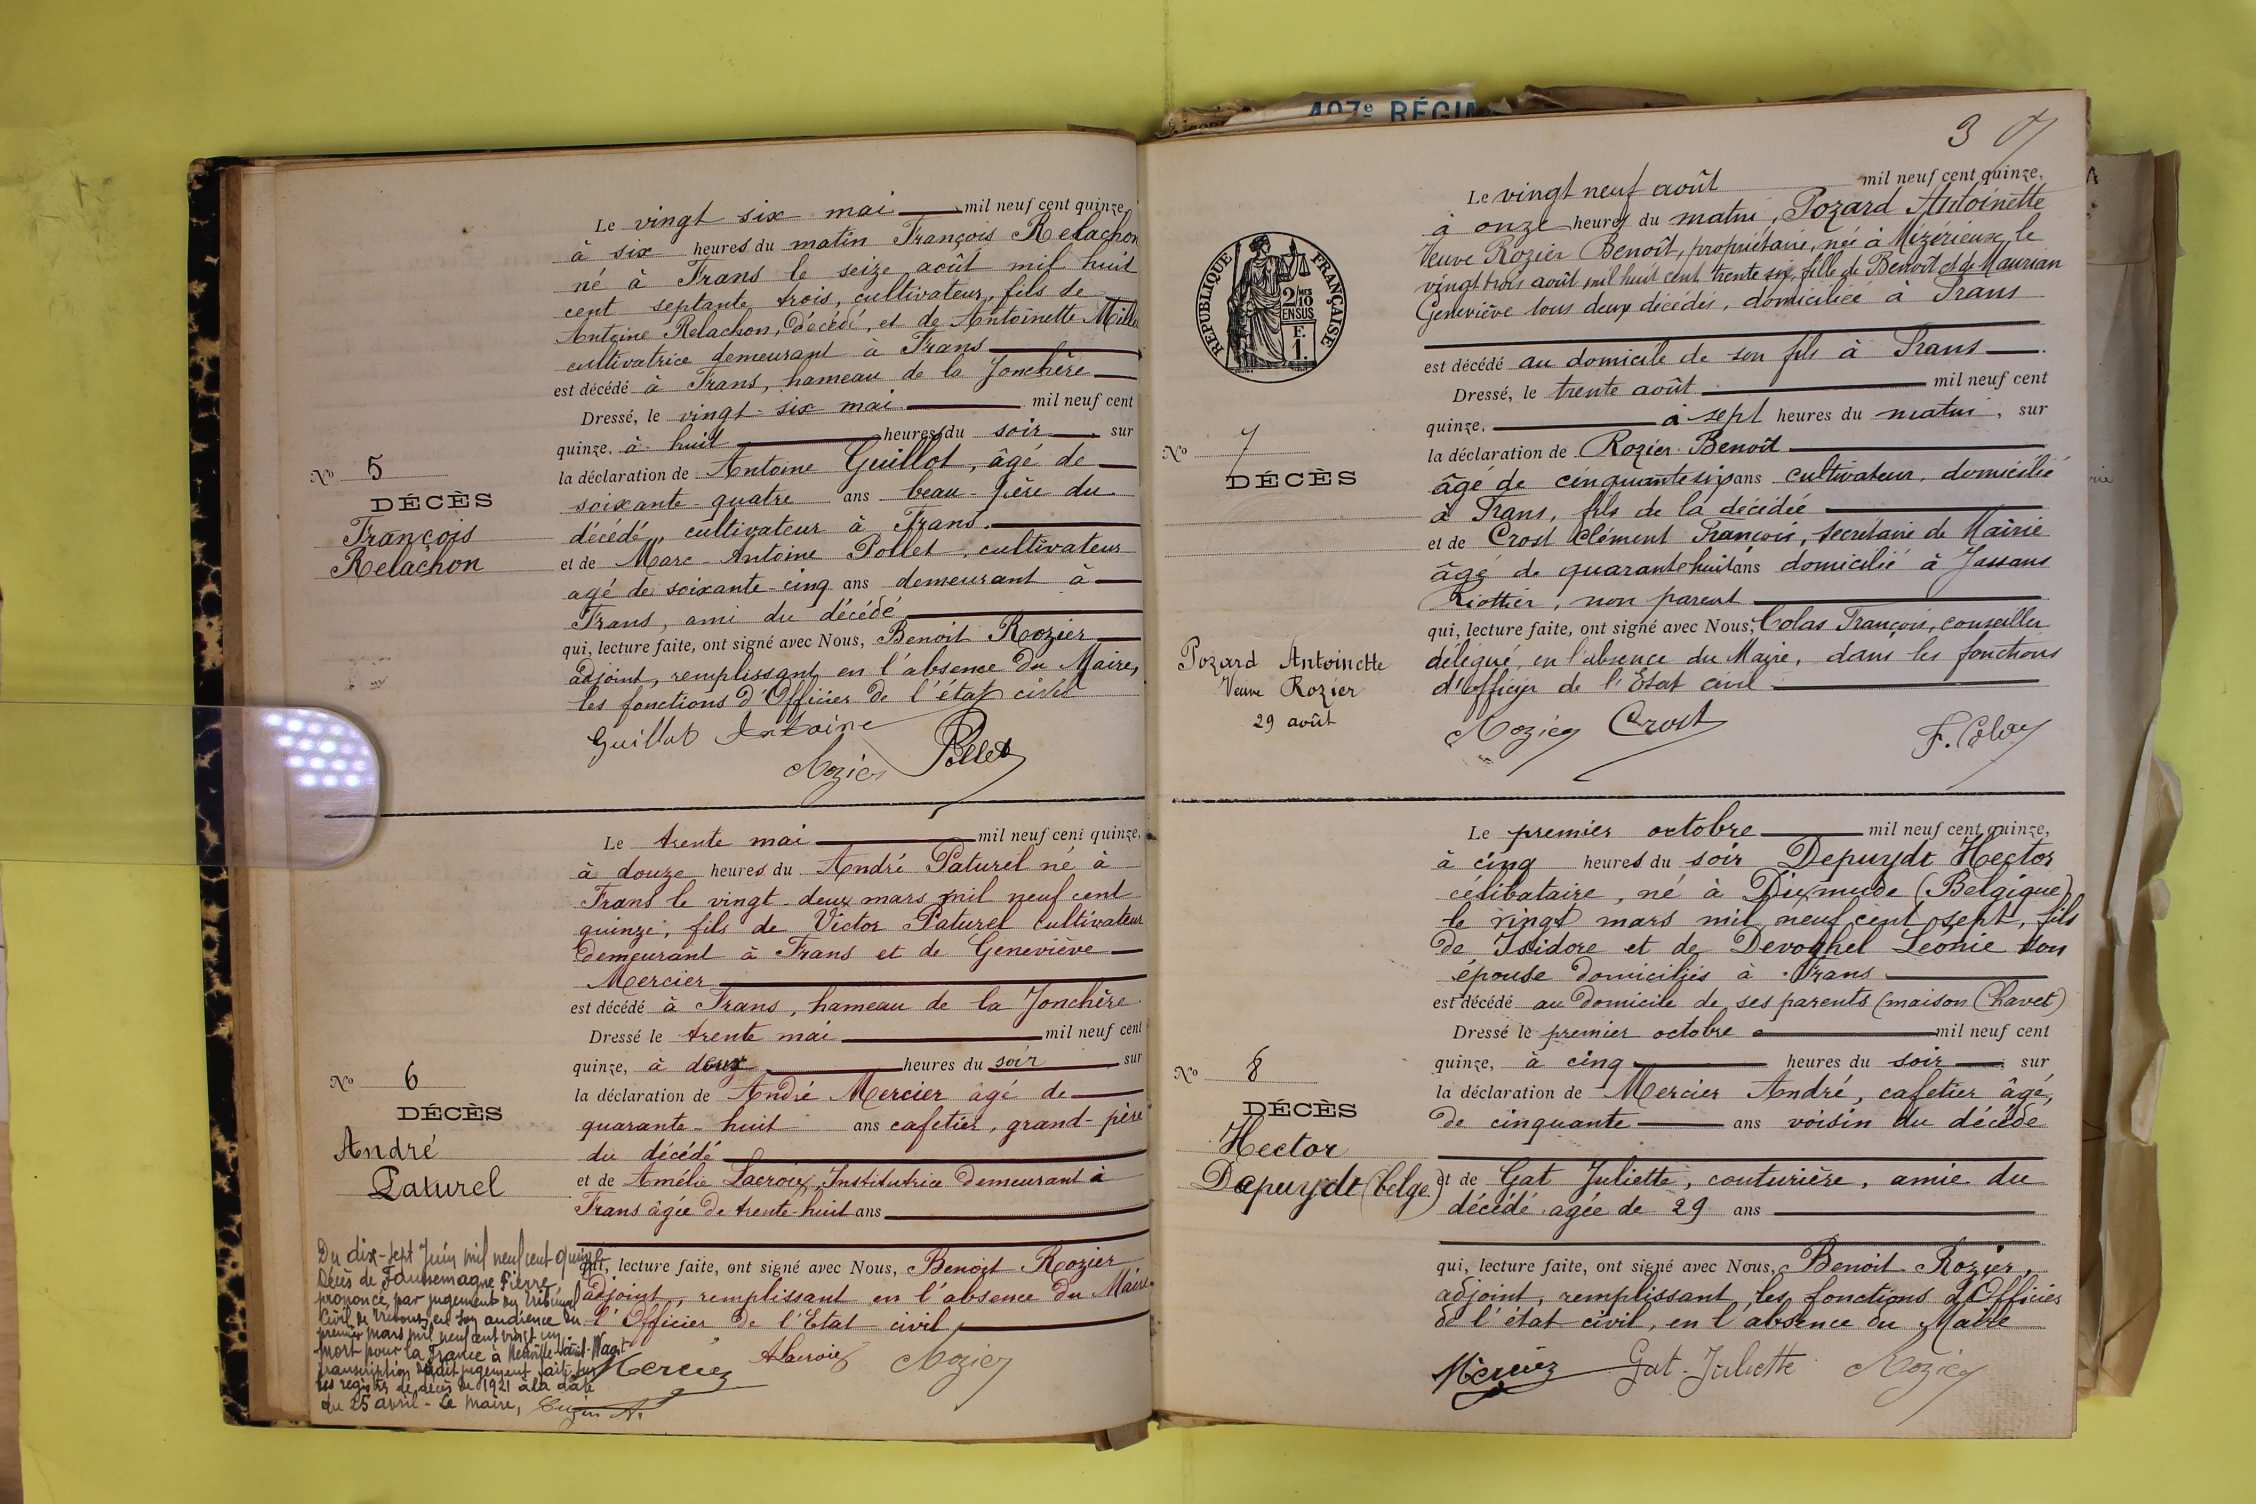 Le vingt six mai mil neuf cent quinze,
à six heures du matin François Relachon
né à Frans le seize août mil huit
cent septante trois, cultivateur, fils de
Antoine Relachon, décédé, et de Antoinette
cultivatrice demeurant à Frans
est décédé à Frans, hameau de la Jonchère
Dressé, le vingt-six mai mil neuf cent
quinze, à huit heures du soir sur
la déclaration de Antoine Guillot, âgé de
soixante quatre ans beau-père du
décédé, cultivateur à Frans.
et de Marc-Antoine Pollet, cultivateur
agé de soixante-cinq ans demeurant à
Frans, ami du décédé
qui, lecture faite, ont signé avec Nous, Benoit Rozier
adjoint, remplissant en l'absence du Maire,
les fonctions d'Officier de l'état civil
Guillot Antoine
Rozier Pollet
No 5
DÉCÈS
François
Relachon
Le trente mai mil neuf cent quinze,
à douze heures du André Paturel né à
Frans le vingt-deux mars mil neuf cent
quinze, fils de Victor Paturel cultivateur
demeurant à Frans et de Geneviève
Mercier
est décédé à Frans, hameau de la Jonchère
Dressé le trente mai mil neuf cent
quinze, à deux heures du soir sur
la déclaration de André Mercier âgé de
quarante-huit ans cafetier, grand-père
du décédé
et de Amélie Lacroix, Institutrice demeurant à
Frans âgée de trente-huit ans
qui, lecture faite, ont signé avec Nous, Benoit Rozier
adjoint, remplissant en l'absence du Maire
l'Officier de l'Etat civil
Mercier ALacroix Rozier
No 6
DÉCÈS
André
Paturel
Du dix-sept Juin mil neuf cent quinze
Décès de Foussemagne Pierre
prononcé par jugement du tribunal
Civil de Trévoux en son audience du
premier mars mil neuf cent vingt un
mort pour la France à Neuville-Saint-Waast
transcription dudit jugement faite sur
les registres de décès de 1921 à la date
du 25 avril - Le Maire,
407e RÉGIM
3
RÉPUBLIQUE FRANÇAISE
2/10 MES
EN SUS
F.
1.
Le vingt neuf août mil neuf cent quinze,
à onze heures du matin, Pozard Antoinette
Veuve Rozier Benoît, propriétaire, née à Mizérieux le
vingt trois août mil huit cent trente six, fille de Benoît et de Maurian
Geneviève tous deux décédés, domiciliée à Frans
est décédé au domicile de son fils à Frans
Dressé, le trente août mil neuf cent
quinze, à sept heures du matin, sur
la déclaration de Rozier Benoît
âgé de cinquante six ans cultivateur, domicilié
à Frans, fils de la décédée
et de Crost Clément François, secrétaire de Mairie
âgé de quarante huit ans domicilié à Jassans
Riottier, non parent
qui, lecture faite, ont signé avec Nous, Colas François, conseiller
délégué, en l'absence du Maire, dans les fonctions
d'officier de l'Etat civil
Rozier Crost F. Colas
No 7
DÉCÈS
Pozard Antoinette
Veuve Rozier
29 août
Le premier octobre mil neuf cent quinze,
à cinq heures du soir Depuydt Hector
célibataire, né à Dixmude (Belgique)
le vingt mars mil neuf cent sept, fils
de Isidore et de Devoghel Léonie son
épouse domiciliés à Frans
est décédé au domicile de ses parents (maison Chavet)
Dressé le premier octobre mil neuf cent
quinze, à cinq heures du soir sur
la déclaration de Mercier André, cafetier âgé,
de cinquante ans voisin du décédé
et de Gat Juliette, couturière, amie du
décédé agée de 29 ans
qui, lecture faite, ont signé avec Nous, Benoit Rozier,
adjoint, remplissant les fonctions d'Officier
de l'état civil, en l'absence du Maire
Mercier Gat Juliette Rozier
No 8
DÉCÈS
Hector
Depuydt (belge)